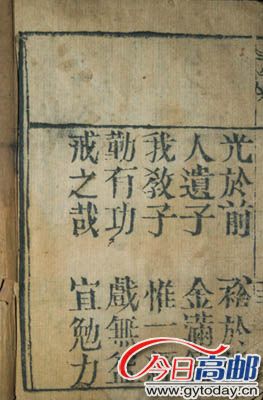 光於前 裕於
人遺子 金滿
我教子 惟一
勤有功 戲無益
戒之哉 宜勉力
今日高邮
www.gytoday.cn